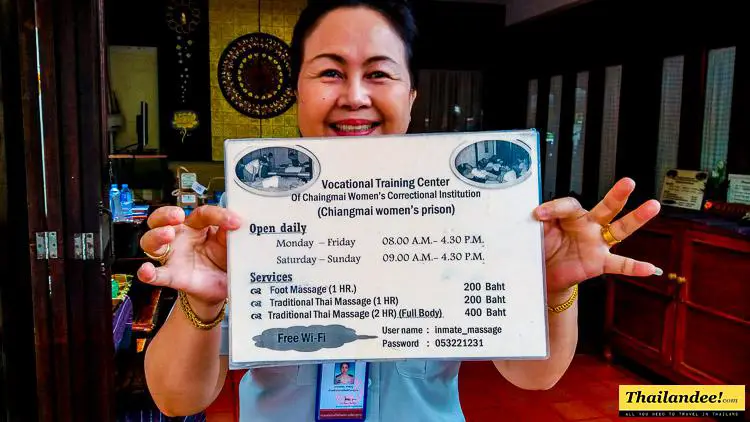 Vocational Training Center
Of Chaingmai Women's Correctional Institution
(Chiangmai women's prison)
Open daily
Monday – Friday 08.00 A.M.- 4.30 P.M.
Saturday – Sunday 09.00 A.M.- 4.30 P.M.
Services
Foot Massage (1 HR.) 200 Baht
Traditional Thai Massage (1 HR) 200 Baht
Traditional Thai Massage (2 HR) (Full Body) 400 Baht
Free Wi-Fi
User name : inmate_massage
Password : 053221231
Thailandee!.com
ALL YOU NEED TO TRAVEL IN THAILAND